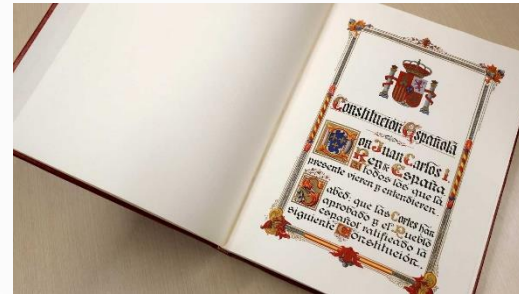 Constitución Española
Don Juan Carlos I
Rey de España
a todos los que la
presente vieren y entendieren.
Sabed: que las Cortes han
aprobado y el Pueblo
español ratificado la
siguiente Constitución.